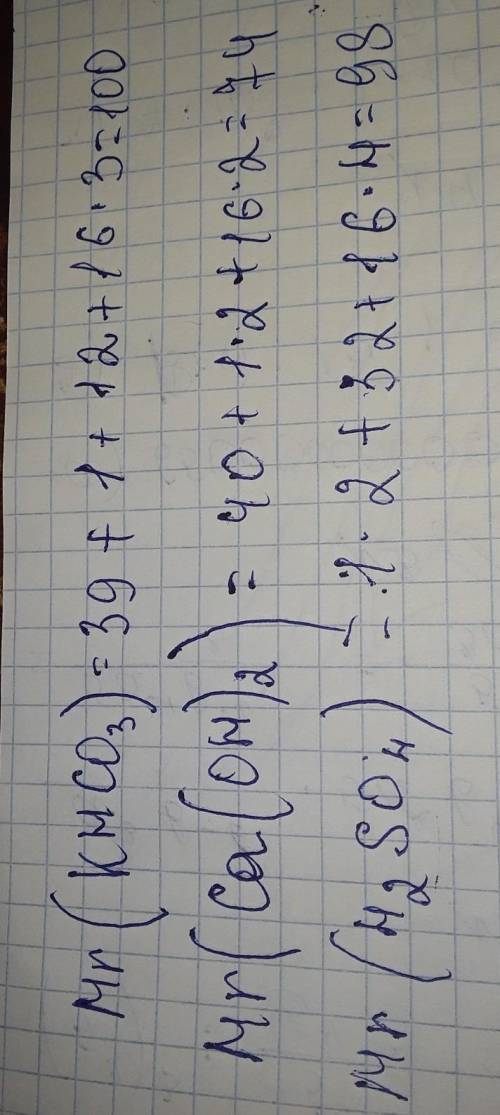 Mr (KHCO₃) = 39 + 1 + 12 + 16 · 3 = 100
Mr (Ca(OH)₂) = 40 + 1 · 2 + 16 · 2 = 74
Mr (H₂SO₄) = 1 · 2 + 32 + 16 · 4 = 98